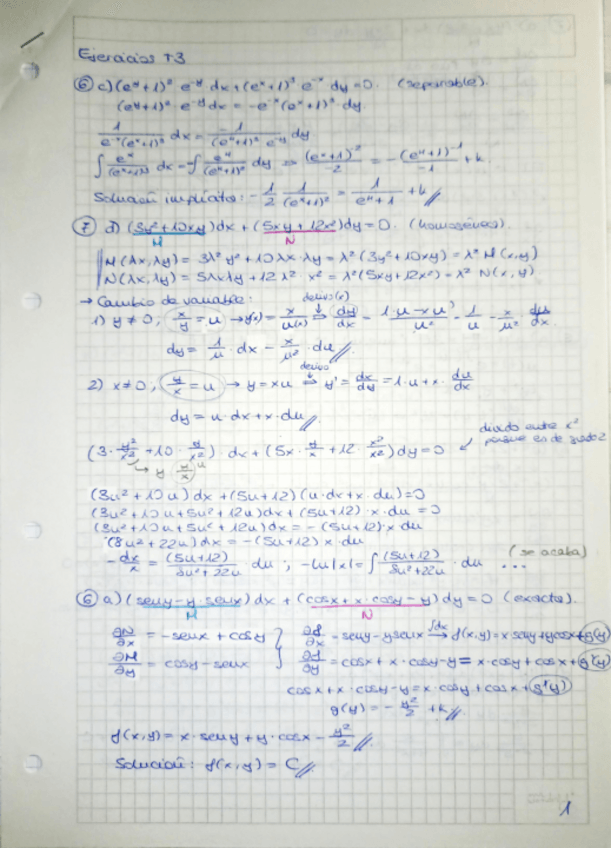 Ejercicios T3
⑥ c) (e^y+1)² e^-y dx + (e^x+1)³ e^-x dy = 0. (separable).
(e^y+1)² e^-y dx = -e^-x (e^x+1)³ dy.
1/(e^-x(e^x+1)³) dx = -1/((e^y+1)² e^-y) dy
∫ e^x/(e^x+1)³ dx = -∫ e^y/(e^y+1)² dy ⇒ (e^x+1)^-2/-2 = -(e^y+1)^-1/-1 + k
Solución implícita: -1/2 1/(e^x+1)² = 1/(e^y+1) + k //
⑦ d) (3y²+10xy)dx + (5xy+12x²)dy = 0. (homogénea).
M N
M(λx,λy) = 3λ²y² + 10λx·λy = λ²(3y²+10xy) = λ² M(x,y)
N(λx,λy) = 5λxλy + 12λ² x² = λ²(5xy+12x²) = λ² N(x,y)
→ Cambio de variable: derivo(x)
1) y≠0, x/y = u → y(x) = x/u(x) ⇒ dy/dx = (1·u-xu')/u² = 1/u - x/u² du/dx
dy = 1/u · dx - x/u² · du //
derivo
2) x≠0, y/x = u → y = xu ⇒ y' = dx/dy = 1·u + x · du/dx
dy = u·dx + x·du //
divido entre x²
(3·y²/x² + 10· y/x²)·dx + (5x· y/x + 12· x²/x²)dy = 0 ↙ porque es de grado 2
↳ y y/x u
(3u²+10u)dx + (5u+12)(u·dx+x·du) = 0
(3u²+10u+5u²+12u)dx + (5u+12)·x·du = 0
(3u²+10u+5u²+12u)dx = -(5u+12)·x du
(8u²+22u)dx = -(5u+12) x du
-dx/x = (5u+12)/(8u²+22u) · du ; -ln|x| = ∫ (5u+12)/(8u²+22u) · du ... (se acaba)
⑥ a) (seny-y·senx)dx + (cosx+x·cosy-y)dy = 0 (exacta).
M N
∂N/∂x = -senx + cosy } ∂f/∂x = seny-ysenx →∫dx f(x,y) = x seny+ycosx+g(y)
∂M/∂y = cosy-senx } ∂f/∂y = cosx+x·cosy-y = x·cosy+cosx+g'(y)
cosx+x·cosy-y = x·cosy+cosx+g'(y)
g(y) = -y²/2 + k //
f(x,y) = x·seny + y·cosx - y²/2 //
Solución: f(x,y) = C //
1